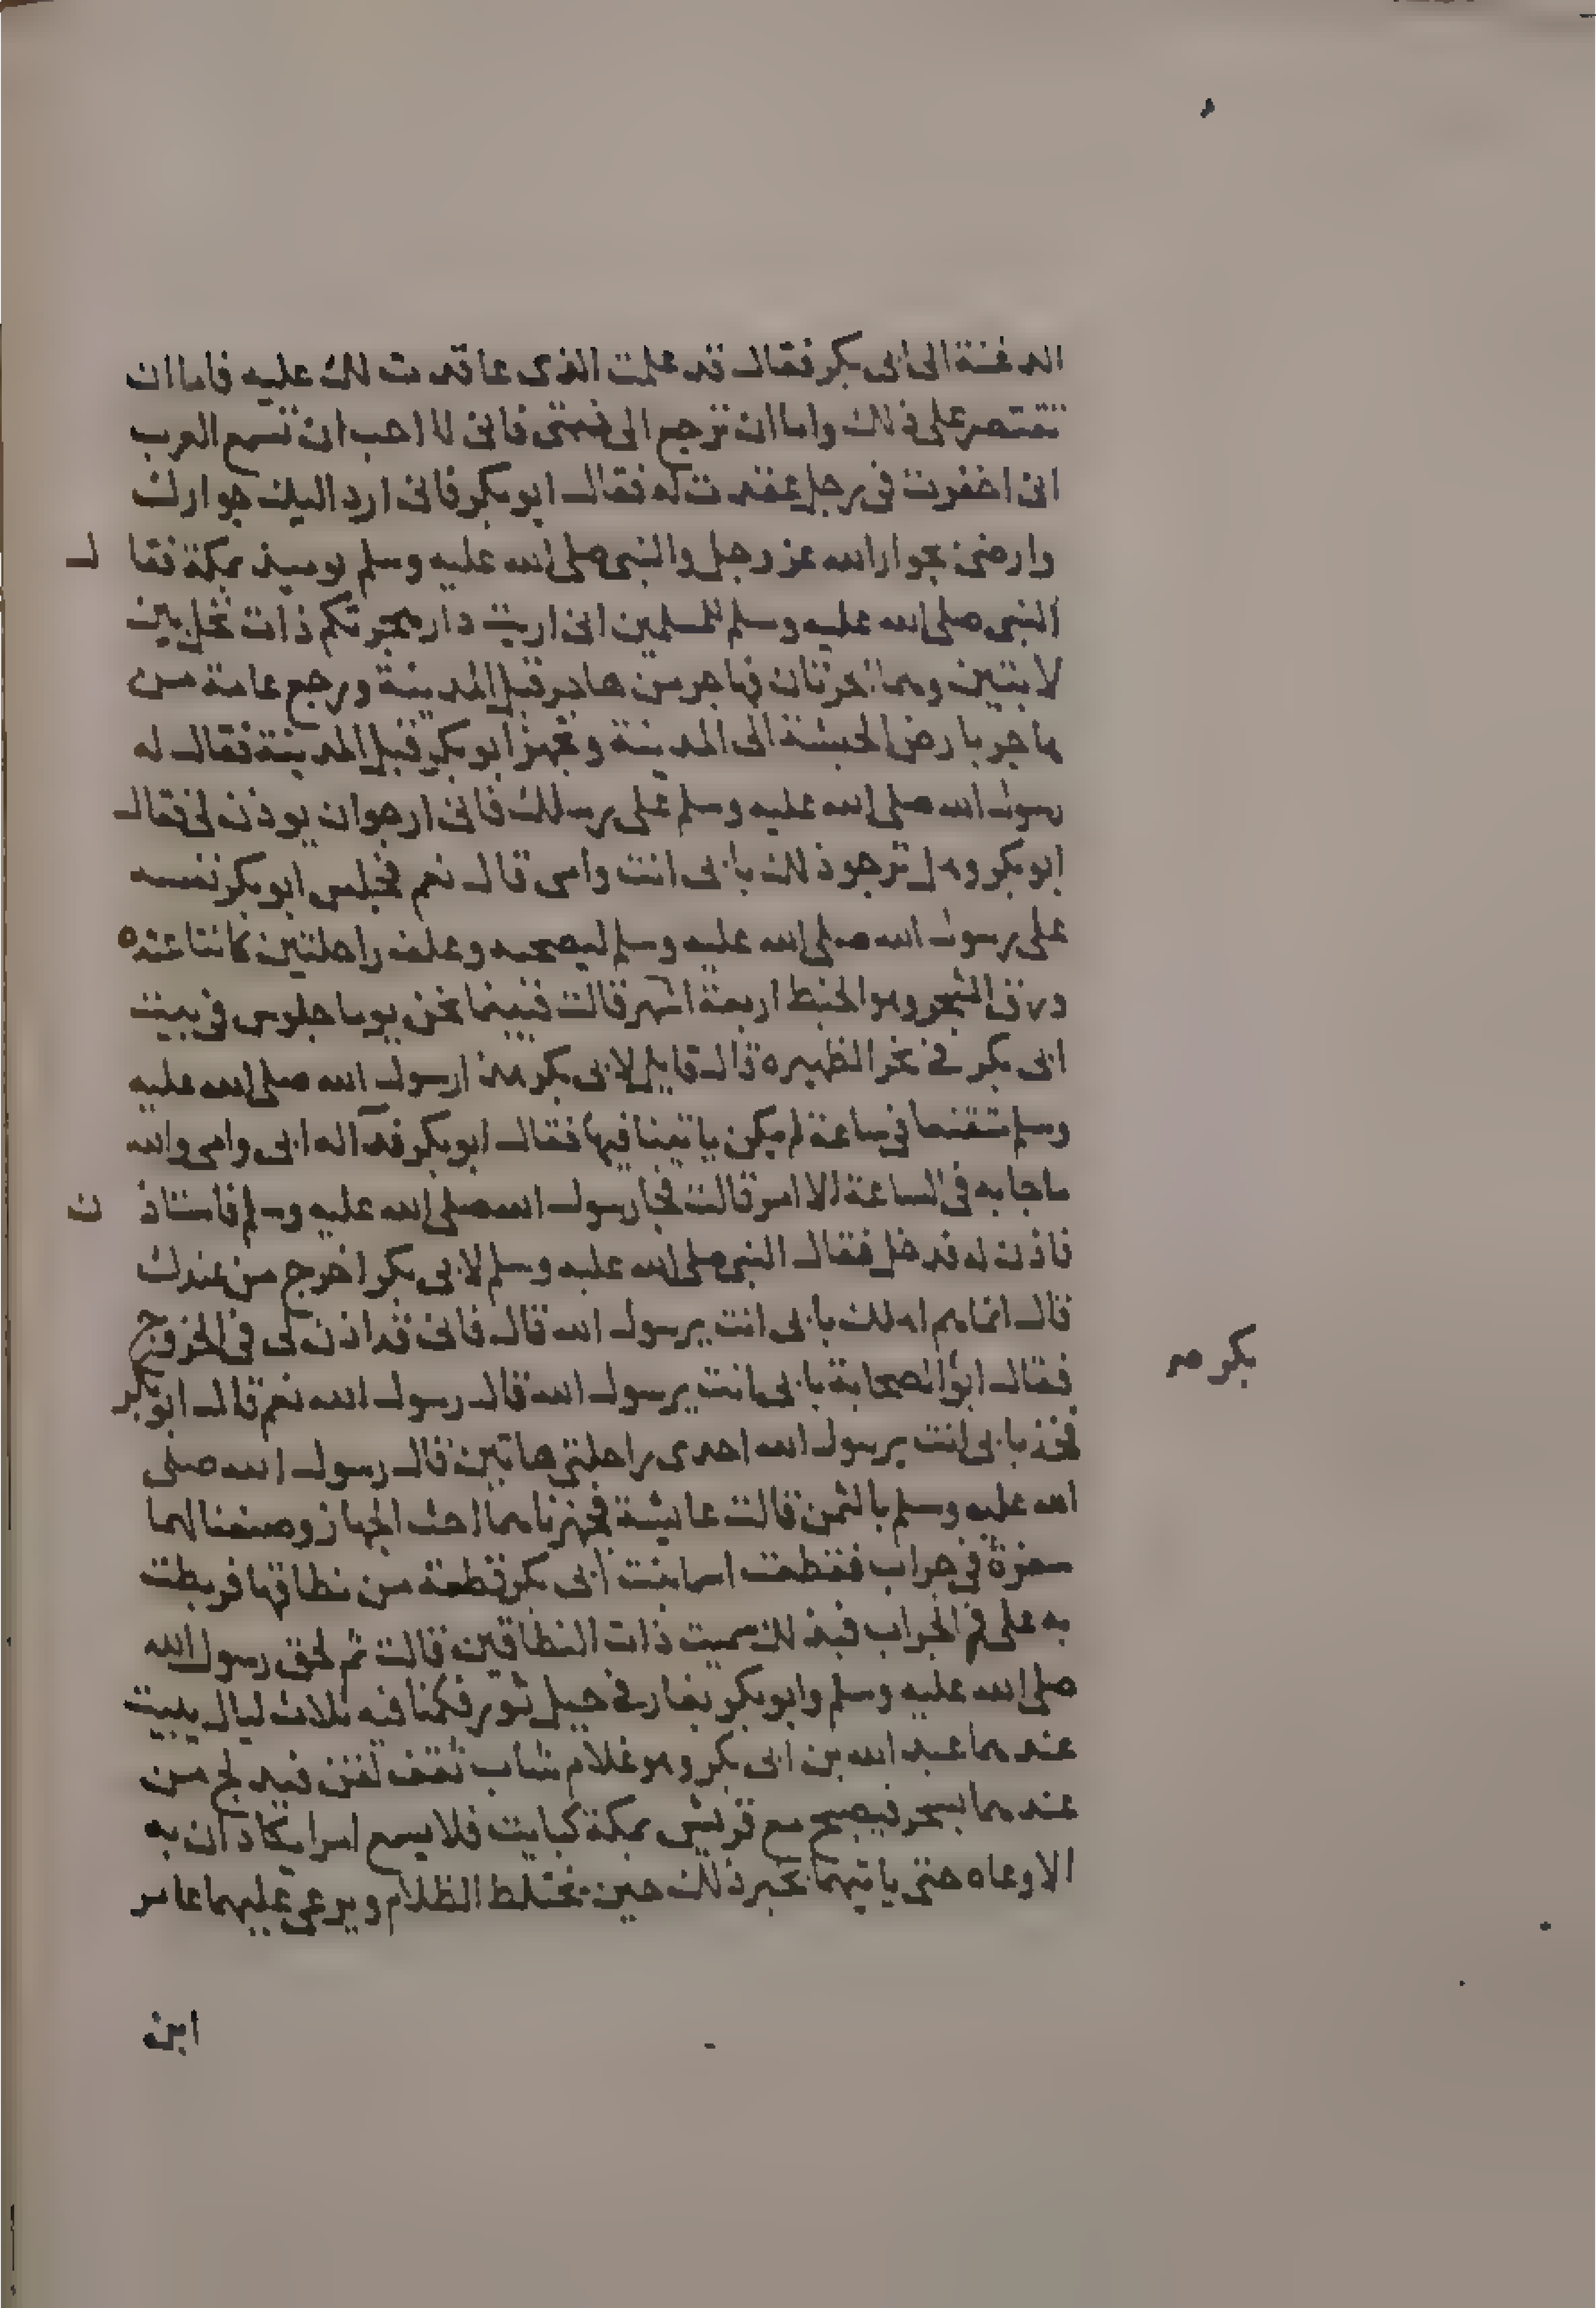 الدغنة الى ابى بكر فقال قد علمت الذى عاقدت لك عليه فاما ان
تقتصر على ذلك واما ان ترجع الى ذمتى فانى لا احب ان تسمع العرب
انى اخفرت فى رجل عقدت له فقال ابو بكر فانى ارد اليك جوارك
وارضى بجوار الله عز وجل والنبى صلى الله عليه وسلم يوميذ بمكة فقال
النبى صلى الله عليه وسلم للمسلمين انى اريت دار هجرتكم ذات نخل بين
لابتين وهما الحرتان فهاجر من هاجر قبل المدينة ورجع عامة من
هاجر بارض الحبشة الى المدينة وتجهز ابو بكر قبل المدينة فقال له
رسول الله صلى الله عليه وسلم على رسلك فانى ارجو ان يوذن لى فقال
ابو بكر وهل ترجو ذلك بابى انت وامى قال نعم فحبس ابو بكر نفسه
على رسول الله صلى الله عليه وسلم ليصحبه وعلف راحلتين كانتا عنده
ورق السمر وهو الخبط اربعة اشهر قالت فبينما نحن يوما جلوس فى بيت
ابى بكر فى نحر الظهيرة قال قايل لابى بكر هذا رسول الله صلى الله عليه
وسلم متقنعا فى ساعة لم يكن ياتينا فيها فقال ابو بكر فدآ له ابى وامى والله
ما جا به فى الساعة الا امر قالت فجا رسول الله صلى الله عليه وسلم فاستاذن
فاذن له فدخل فقال النبى صلى الله عليه وسلم لابى بكر اخرج من عندك
قال انما هم اهلك بابى انت يرسول الله قال فانى قد اذن لى فى الخروج
فقال ابو الصحابة بابى انت يرسول الله قال رسول الله نعم قال ابو بكر
بكر صر
فخذ بابى انت يرسول الله احدى راحلتى هاتين قال رسول الله صلى
الله عليه وسلم بالثمن قالت عايشة فجهزناهما احث الجهاز وصنعنا لهما
سفرة فى جراب فقطعت اسما بنت ابى بكر قطعة من نطاقها فربطت
به على فم الجراب فبذلك سميت ذات النطاقين قالت ثم لحق رسول الله
صلى الله عليه وسلم وابو بكر بغار فى جبل ثور فكمنا فيه ثلاث ليال يبيت
عندهما عبد الله بن ابى بكر وهو غلام شاب ثقف لقن فيدلج من
عندهما بسحر فيصبح مع قريش بمكة كبايت فلا يسمع امرا يكادان به
الا وعاه حتى ياتيهما بخبر ذلك حين يختلط الظلام ويرعى عليهما عامر
ابن